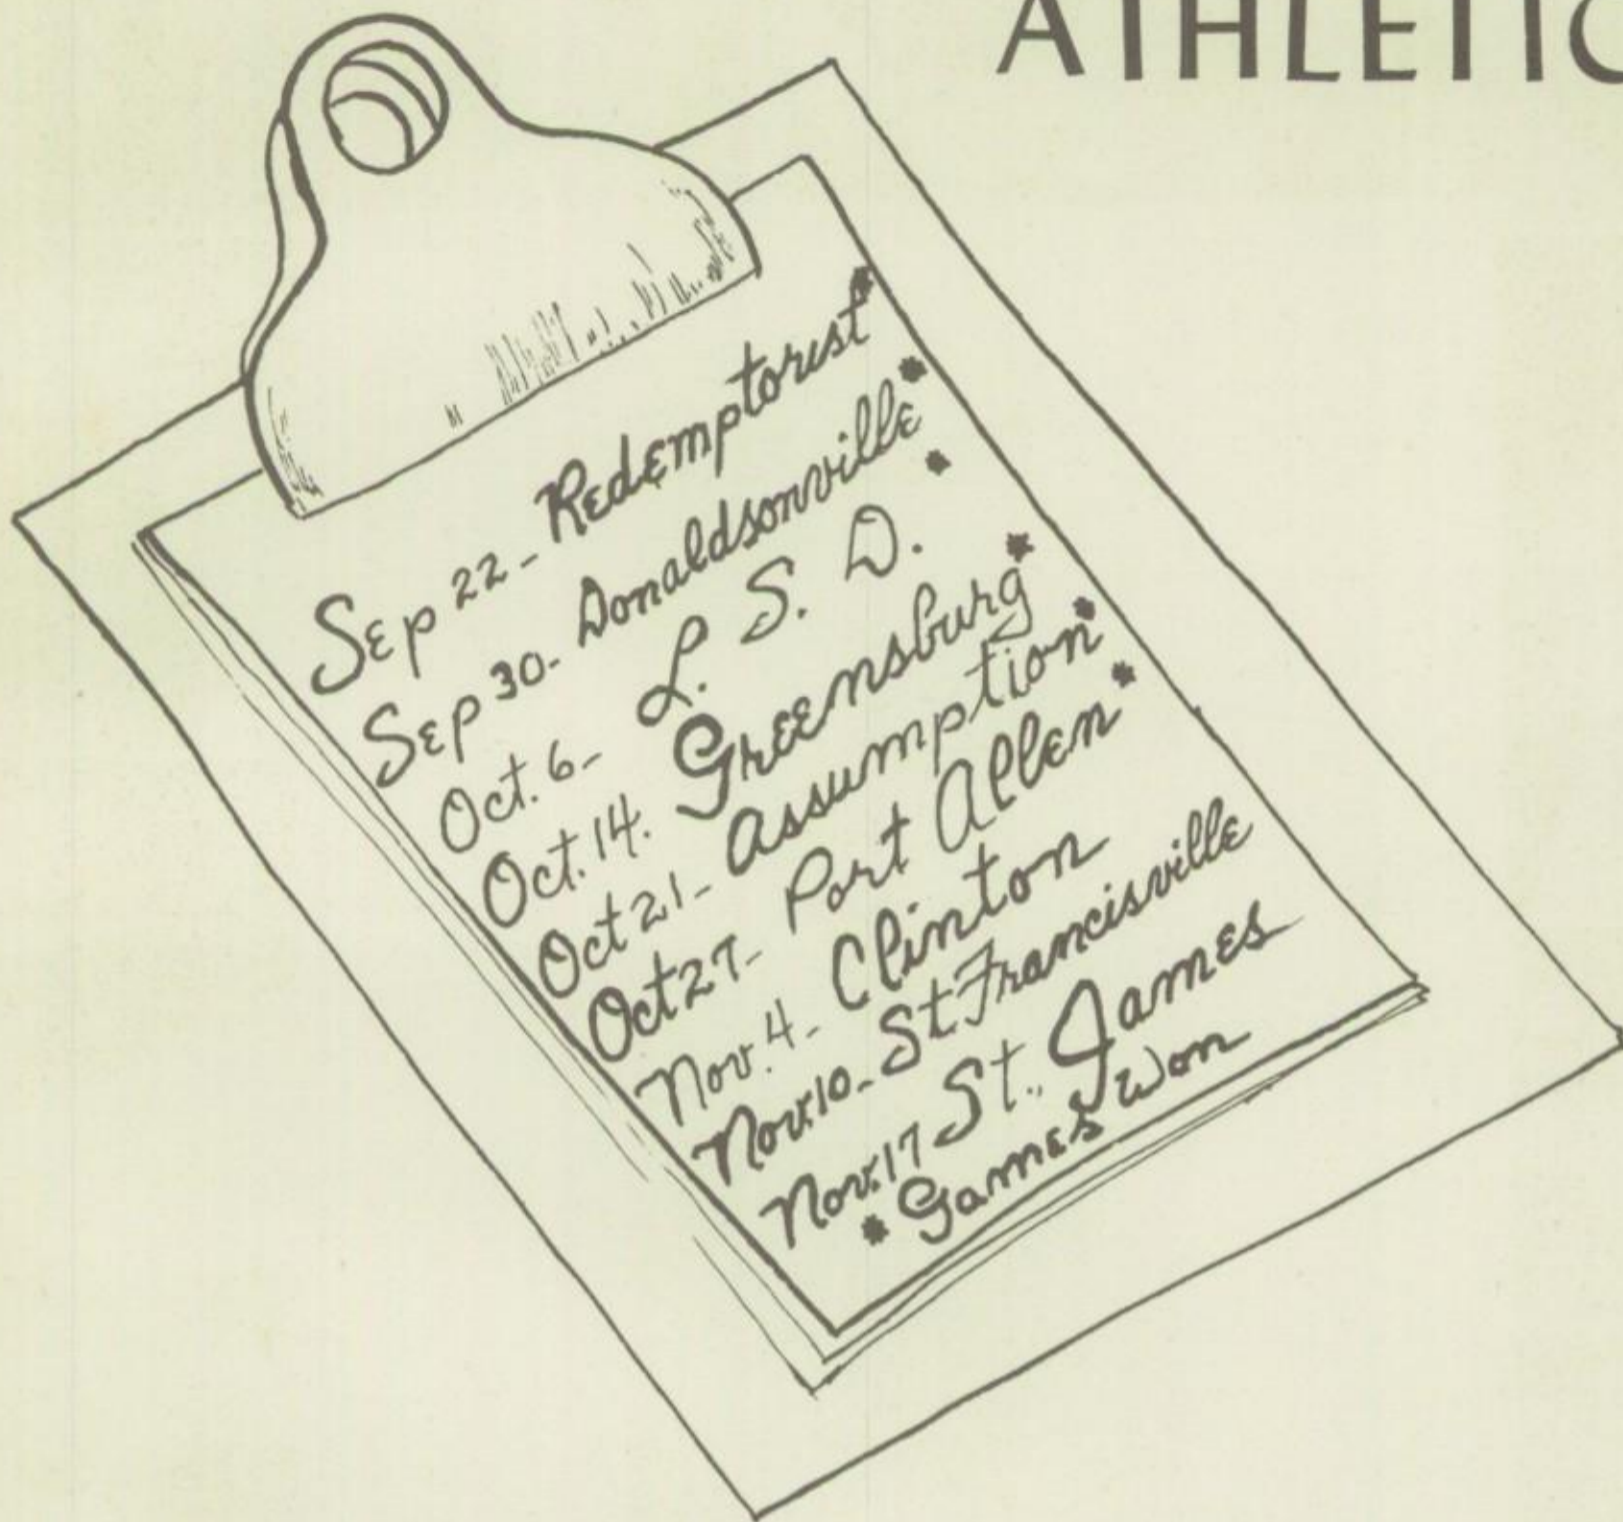 ATHLETIC
Sep 22 - Redemptorist *
Sep 30 - Donaldsonville *
Oct. 6 - L. S. D. *
Oct. 14. Greensburg *
Oct 21 - Assumption *
Oct 27 - Port Allen *
Nov. 4 - Clinton
Nov. 10 - St Francisville
Nov. 17 St. James
* Games Won